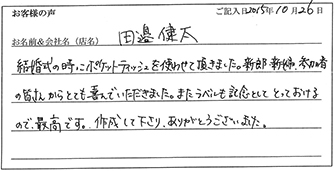 お客様の声 ご記入日 2015年10月26日
お名前&会社名(店名) 田邊健太
結婚式の時にポケットティッシュを使わせて頂きました。新郎新婦、参加者
の皆さんからとても喜んでいただきました。またラベルも記念としてとっておける
ので、最高です。作成して下さり、ありがとうございました。